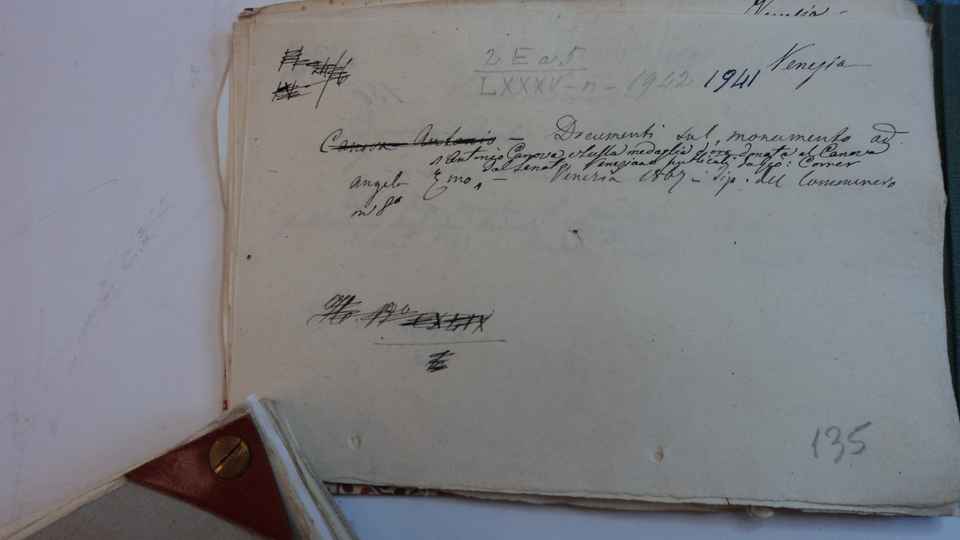 Venezia
2 E a 5
LXXXV-n- 1942 1941 Venezia
Canova Antonio - Documenti sul monumento ad
Antonio Canova e sulla medaglia d'oro donata al Canova
dal Senato Veneziano pubblicati da Gio: Correr
Angelo Emo, - Venezia 1867 - Tip. del Commercio
in 8º
135